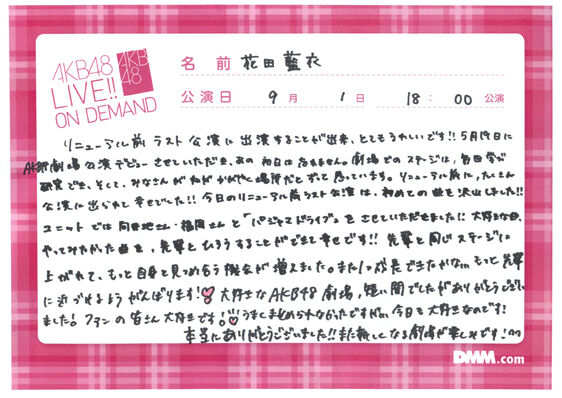 AKB48
LIVE!!
ON DEMAND
AKB
48
名 前 花田 藍衣
公演日 9 月 1 日 18: 00 公演
リニューアル前 ラスト 公演に 出演することが出来、とてもうれしいです!! 5月19日に
AKB劇場公演デビューさせていただき、あの 初日は忘れません。劇場でのステージは、毎回学び
発見でき、そして、みなさんが 場所だと ずっと 思っています。リニューアル前に、たくさん
公演に出られて 幸せでした!! 今日のリニューアル前ラスト公演は、初めての曲を沢山しました!!
ユニットでは 向井地さん・福岡さんと「パジャマドライブ」をさせていただきました!! 大好きな曲、
やってみたかった曲を、先輩とひろうすることができて幸せです!! 先輩と同じステージに
上がれて、もっと自身と見つめ合う機会が増えました。また1つ成長できたかな もっと先輩
に近づけるよう がんばります! 大好きなAKB48劇場、短い間でしたがありがとうござい
ました! ファンの皆さん大好きです! うまくまとめられなかったですが、今日も大好きなのです!
本当にありがとうございました!! また新しくなる劇場が楽しみです!
DMM.com